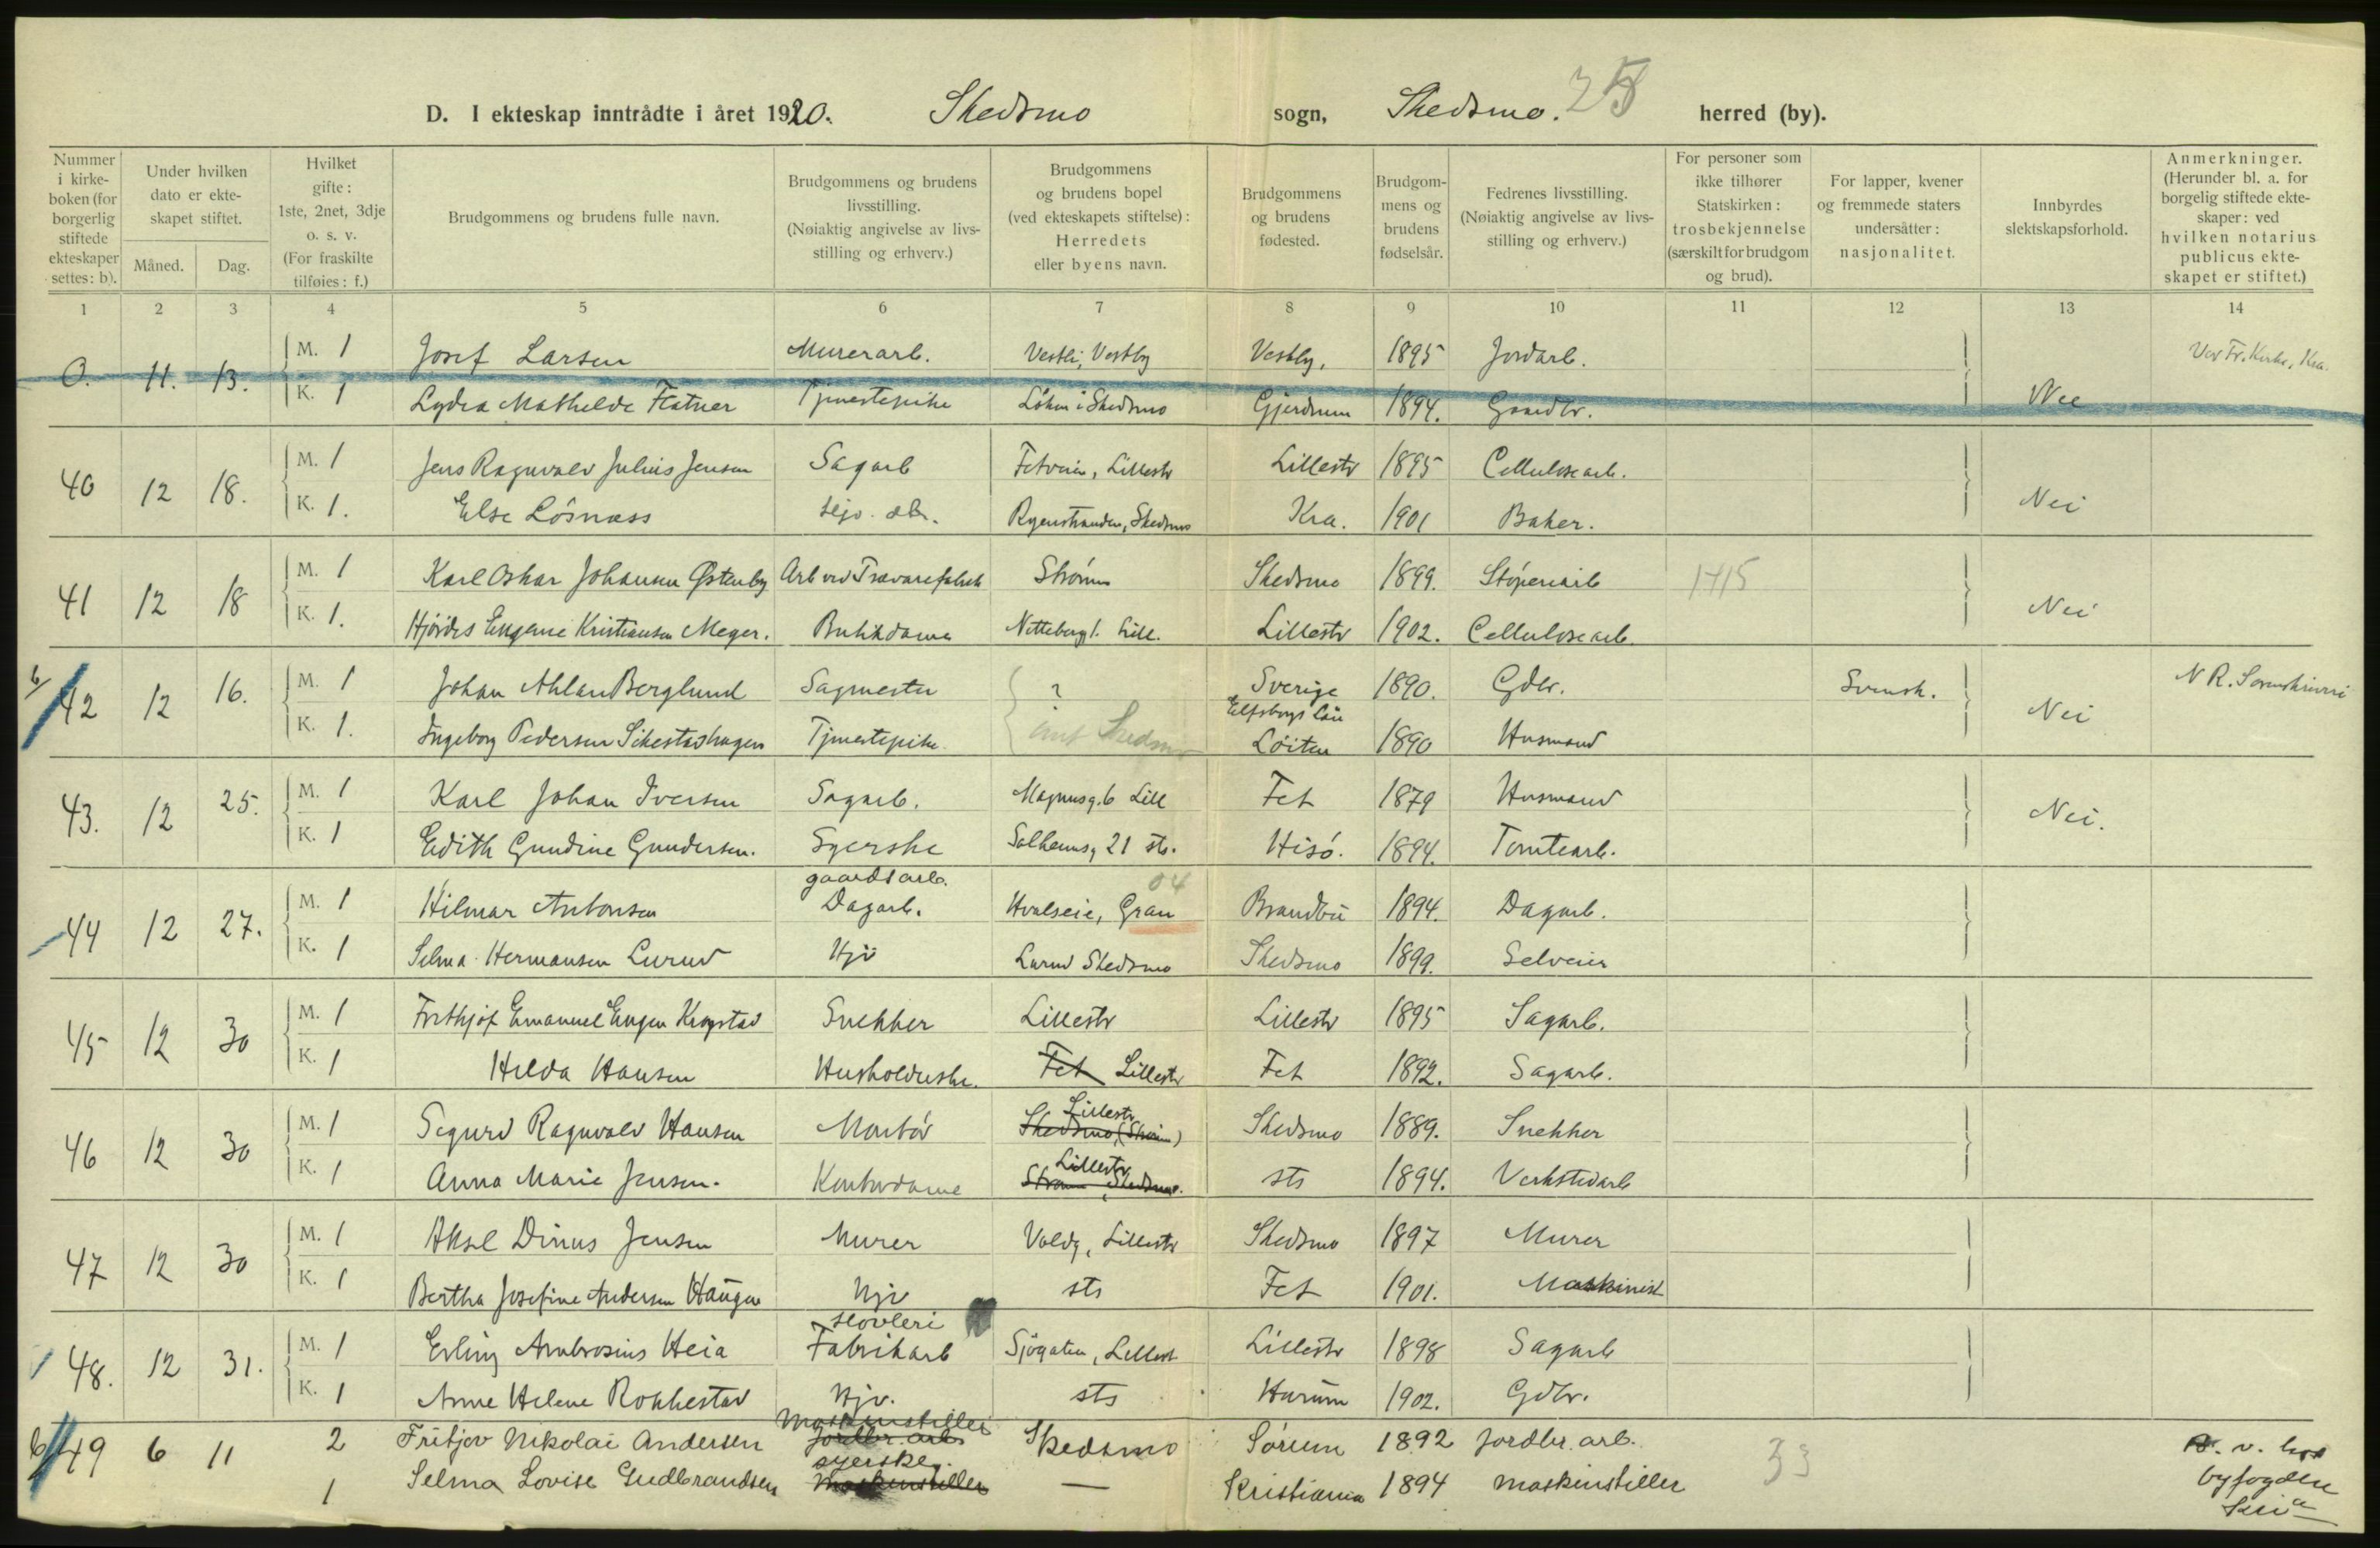 D. I ekteskap inntrådte i året 1920. Skedsmo sogn, Skedsmo. herred (by).
Nummer i kirke-boken (for borgerlig stiftede ekteskaper settes: b).
Under hvilken dato er ekte-skapet stiftet.
Måned. Dag.
Hvilket gifte: 1ste, 2net, 3dje o. s. v. (For fraskilte tilføies: f.)
Brudgommens og brudens fulle navn.
Brudgommens og brudens livsstilling. (Nøiaktig angivelse av livs-stilling og erhverv.)
Brudgommens og brudens bopel (ved ekteskapets stiftelse): Herredets eller byens navn.
Brudgommens og brudens fødested.
Brudgom-mens og brudens fødselsår.
Fedrenes livsstilling. (Nøiaktig angivelse av livs-stilling og erhverv.)
For personer som ikke tilhører Statskirken: trosbekjennelse (særskilt for brudgom og brud).
For lapper, kvener og fremmede staters undersåtter: nasjonalitet.
Innbyrdes slektskapsforhold.
Anmerkninger. (Herunder bl. a. for borgelig stiftede ekte-skaper: ved hvilken notarius publicus ekte-skapet er stiftet.)
1 2 3 4 5 6 7 8 9 10 11 12 13 14
0. 11. 13. M. 1 Josef Larsen Murerarb. Vestli, Vestby Vestby, 1895 Jordarb. Vor Fr. Kirke, Kra.
K. 1 Lydia Mathilde Flatner Tjenestepike Løken i Skedsmo Gjerdrum 1894. Gaardbr. Nei
40 12 18. M. 1 Jens Ragnvald Julius Jensen Sagarb Fetveien, Lillestr Lillestr 1895 Cellulosearb.
K. 1. Else Løsnæss Ryenstranden, Skedsmo Kra. 1901 Baker. Nei
41 12 18 M. 1 Karl Oskar Johansen Østenby Arb ved Trævarefabrik Strømm Skedsmo 1899. Støperiarb 1715
K. 1. Hjördis Eugenie Kristiansen Meyer. Butikdame Nittebergl. Lill. Lillestr 1902. Cellulosearb. Nei
b/ 42 12 16. M. 1 Johan Ahlan Berglund Sagmester ? Sverige Elfsborgs Län 1890. Gdbr. Svensk. N R. Sorenskriveri
K. 1. Ingeborg Pedersen Tjenestepike Skedsmo Løiten 1890 Husmand Nei
43. 12 25. M. 1 Karl Johan Iversen Sagarb. Magnusg. 6 Lill Fet 1879 Husmand
K. 1 Edith Gundine Gundersen. Syerske Solheimsg 21 sts. Hisö. 1894. Tomtearb. Nei.
44 12 27. M. 1 Hilmar Antonsen gaardsarb. Dagarb. Hvalseie, Gran 04 Brandbu 1894. Dagarb.
K. 1 Selma Hermansen Lurud Hjv Lurud Skedsmo Skedsmo 1899. Selveier
45 12 30 M. 1 Frithjof Emanuel Eugen Krogstad Snekker Lillestr Lillestr 1895 Sagarb.
K. 1 Hilda Hansen Husholderske. Fet Lillestr Fet 1892. Sagarb.
46 12 30 M. 1 Sigurd Ragnvald Hansen Montør Lillestr Skedsmo, (Strøm) Skedsmo 1889. Snekker
K. 1 Anna Marie Jensen. Kontordame Lillestr Strømm, Skedsmo. sts 1894. Verkstedarb
47 12 30 M. 1 Aksel Dinus Jensen Murer Voldg, Lillestr Skedsmo 1897 Murer
K. 1 Bertha Josefine Andersen Haugen Hjv sts Fet 1901. Maskinist
48. 12 31. M. 1 Erling Ambrosius Heia Høvleri Fabrikarb Sjøgaten, Lillestr Lillestr 1898 Sagarb
K. 1 Anne Helene Rokkestad Hjv. sts Hurum 1902. Gdbr.
b 49 6 11 2 Fritjov Nikolai Andersen Maskinstiller Jordbr. arb. Skedsmo Sørum 1892 Jordbr. arb. 33 B. v. hos byfogden Kria
1 Selma Lovise Gudbrandsen syerske. Maskinstiller — Kristiania 1894 maskinstiller